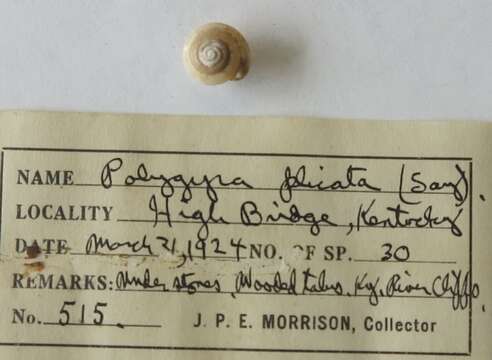 NAME Polygyra plicata (Say).
LOCALITY High Bridge, Kentucky
DATE March 21, 1924 NO. OF SP. 30
REMARKS: Under stones, Wooded talus, Ky. River Cliffs.
No. 515. J. P. E. MORRISON, Collector